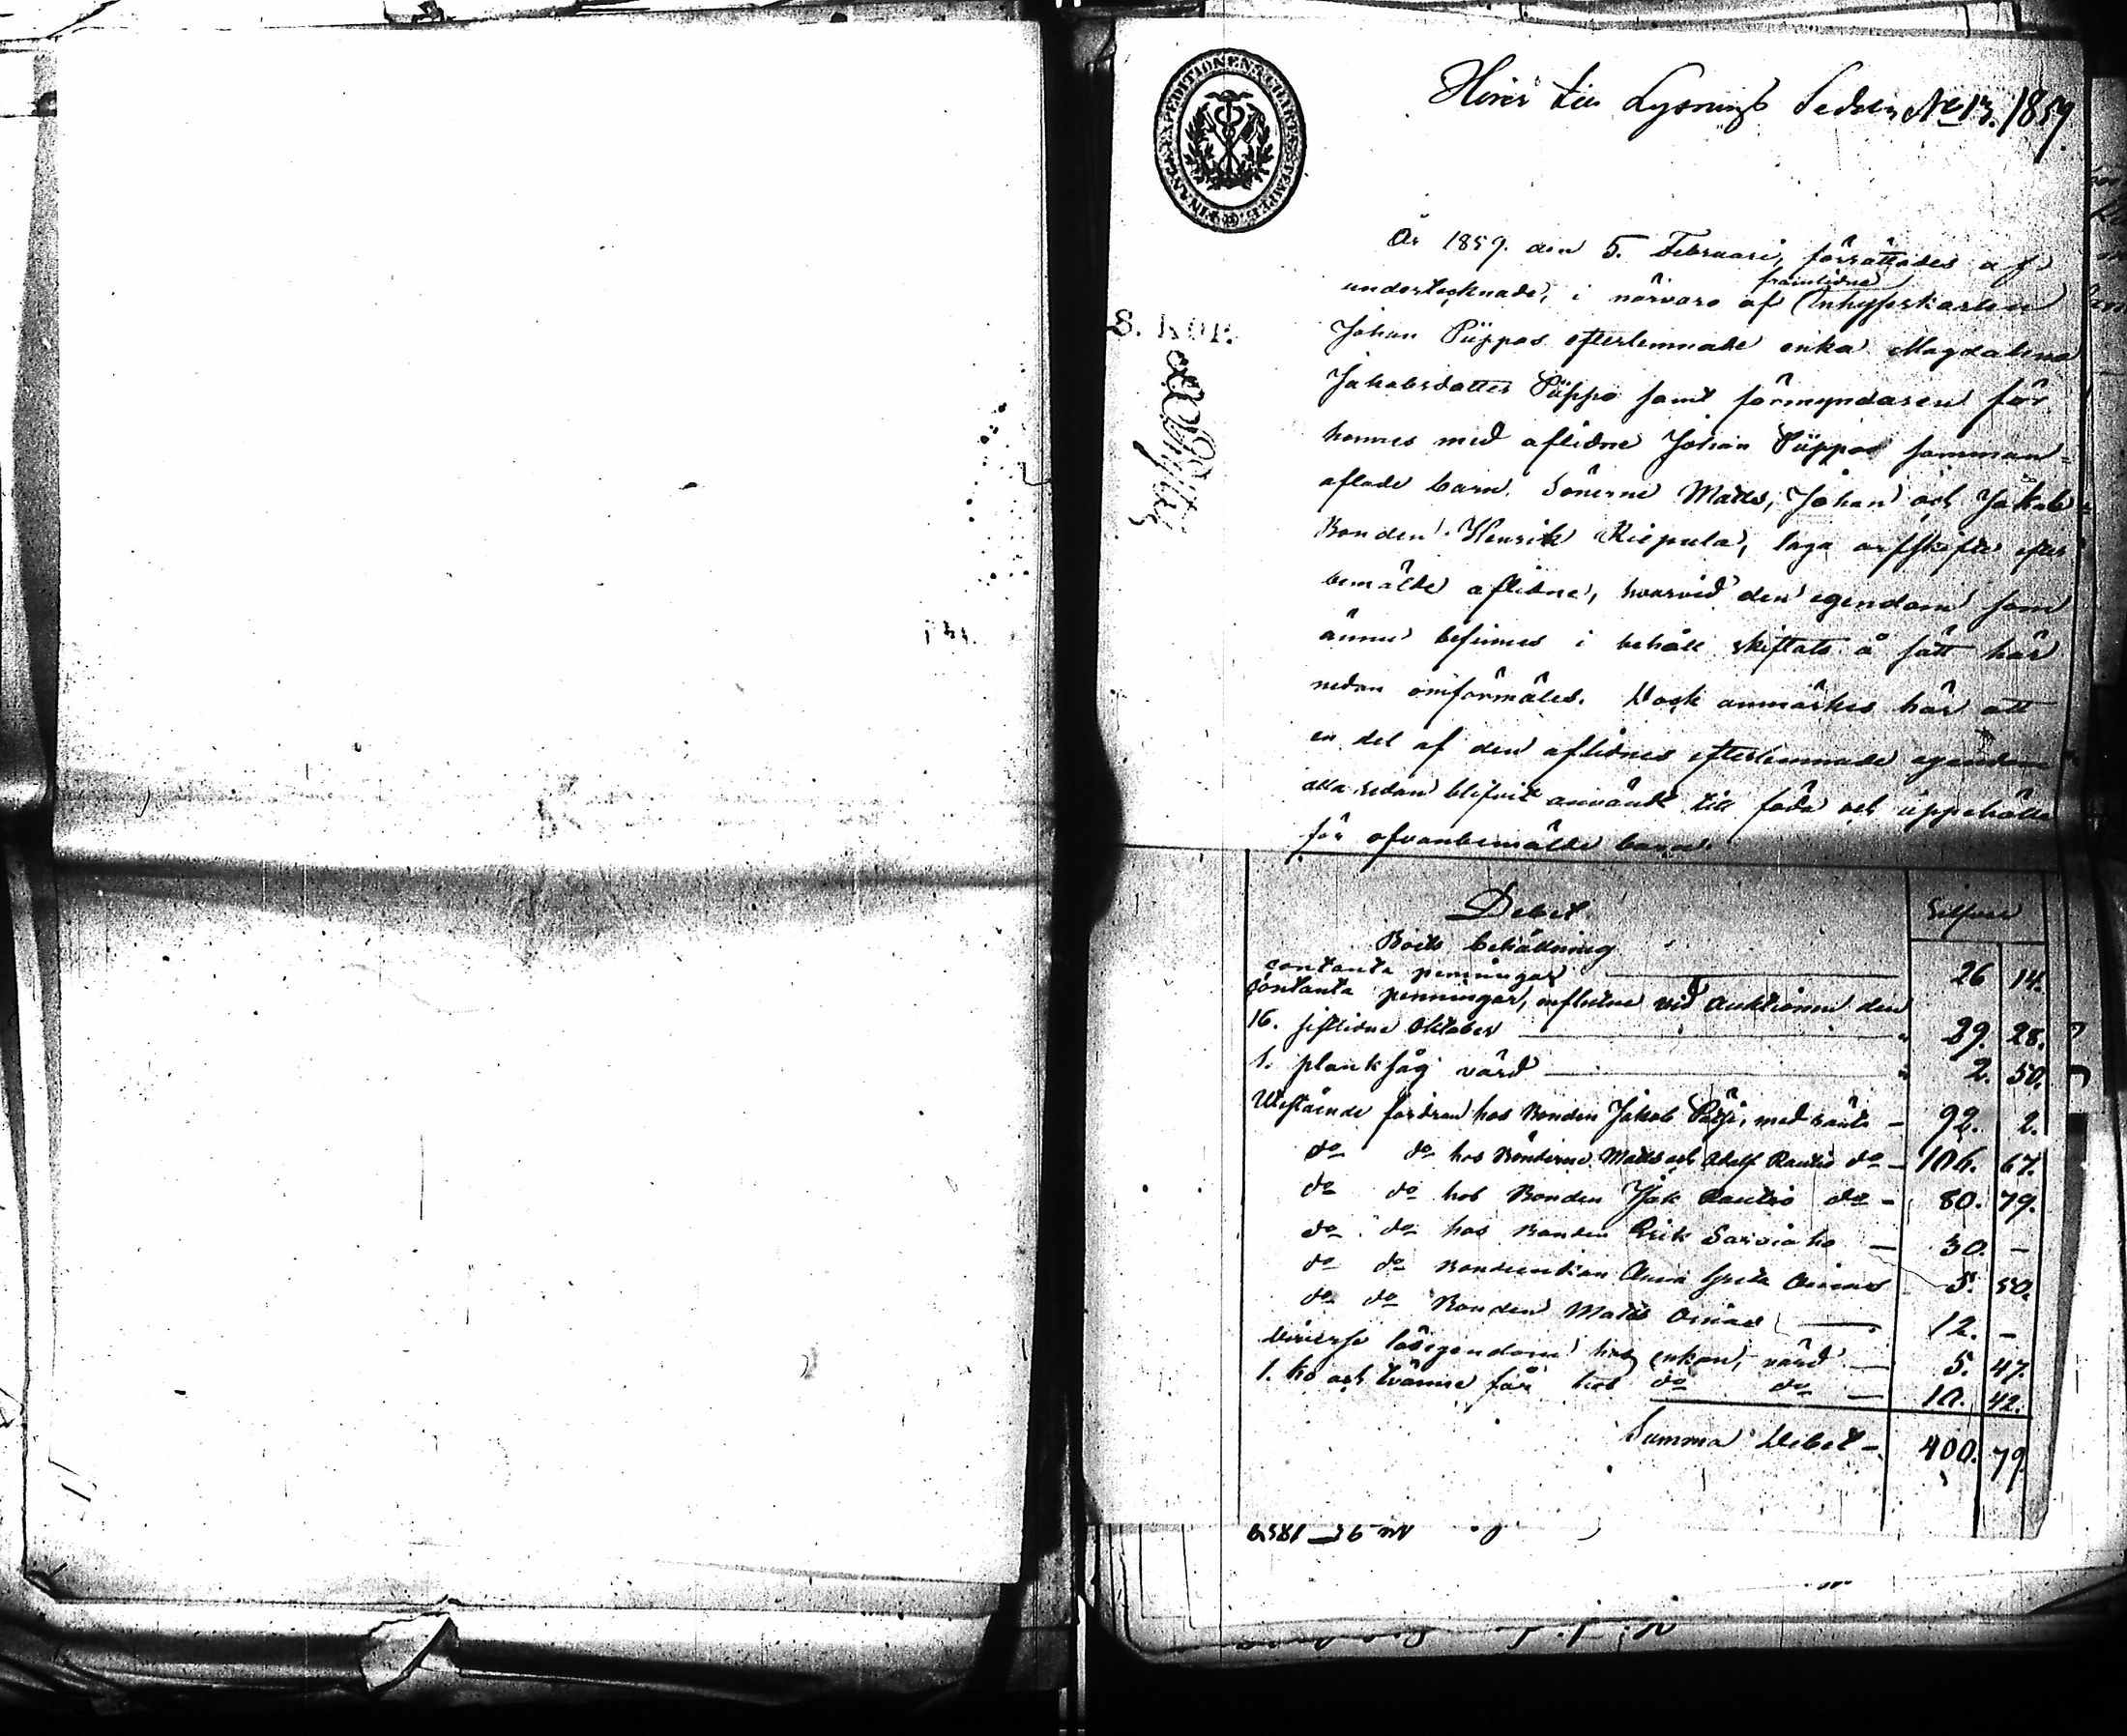 FINANCE EXPEDITIONENS CHARTÆ STEMPEL
Hörer till Lysnings Sedeln No 13. 1859
8. KOP.
År 1859. den 5. Februari, förrättades af
undertecknade, i närvaro af framlidne Inhyseskarlen
Johan Püppos efterlemnade enka Magdalena
Jakobsdotter Püppo samt förmyndaren för
hennes med aflidne Johan Püppo samman-
aflade barn, Sönerne Matts, Johan och Jakob
Bonden Henrik Riepula, laga arfskifte efter
bemälte aflidne, hvarvid den egendom som
ännu befinnes i behåll skiftats å sätt här
nedan omförmäles. Dock anmärkes här att
en del af den aflidnes efterlemnade egendom
alla redan blifvit använde till föda och uppehälle
för ofvanbemälde barn.
Debet Silfver
Boets behållning
contanta penningar 26 14.
contanta penningar, influtne vid Auktionen den
16. sistlidne Oktober 29. 28.
1. planksåg värd 2. 50.
Utestående fordran hos Bonden Jakob med ränta - 92. 2.
do do hos Bönderne Matts och Adolf Rautio do - 106. 67.
do do hos Bonden Isak Rautio do - 80. 79.
do do hos Bonden Erik Sarviaho - 30. -
do do Bondeenkan Anna Greta Ainas 5. 50.
do do Bonden Matts Ainas 12. -
diverse lösegendom hos enkan, värd - 5. 47.
1. ko och tvänne får hos do do - 10. 42.
Summa Debet - 400. 79.